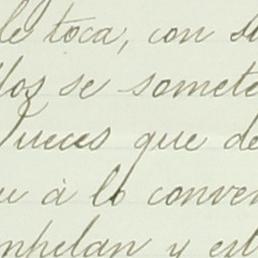 le toca, con su
llos se somete
Jueces que de
u á lo conven
mpelan y est